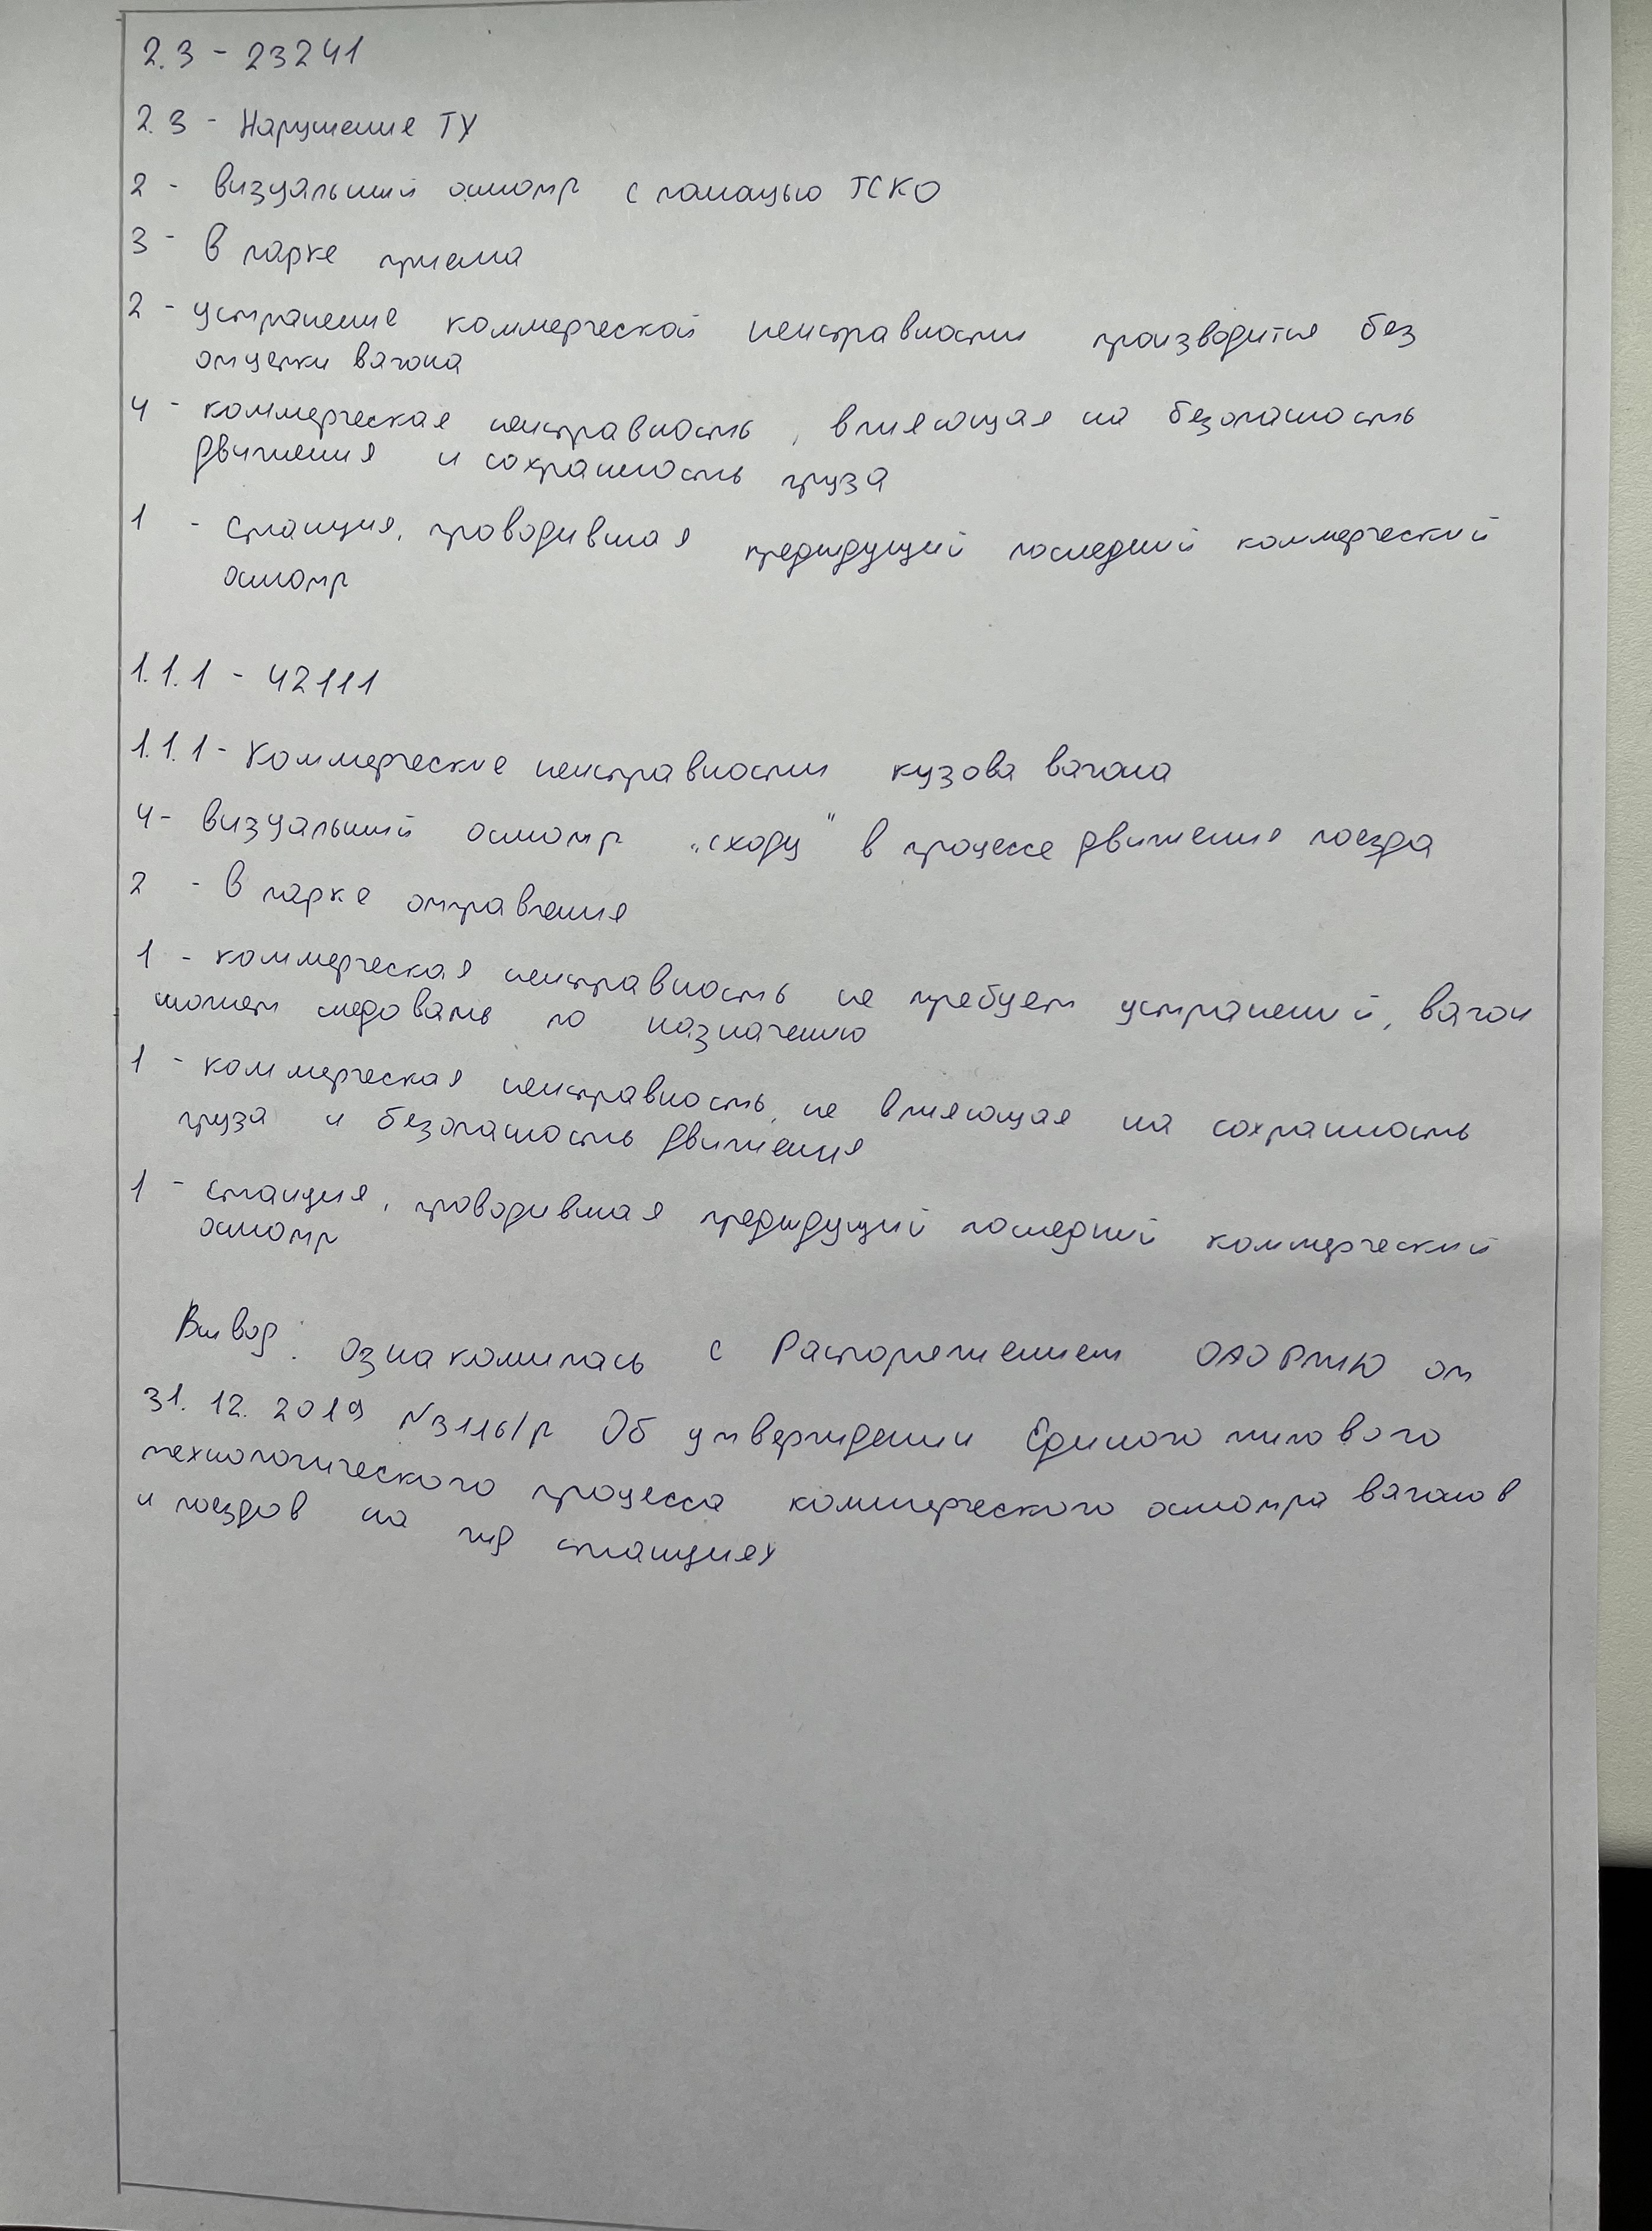 2.3 - 23241
2.3 - Нарушение ТУ
2 - визуальный осмотр с помощью ТСКО
3 - в парке приема
2 - устранение коммерческой неисправности производится без
отцепки вагона
4 - коммерческая неисправность, влияющая на безопасность
движения и сохранность груза
1 - станция, проводившая предыдущий последний коммерческий
осмотр
1.1.1 - 42111
1.1.1 - Коммерческие неисправности кузова вагона
4 - визуальный осмотр „сходу" в процессе движения поезда
2 - в парке отправления
1 - коммерческая неисправность не требует устранений, вагон
может следовать по назначению
1 - коммерческая неисправность, не влияющая на сохранность
груза и безопасность движения
1 - станция, проводившая предыдущий последний коммерческий
осмотр
Вывод: Ознакомилась с Распоряжением ОАО РЖД от
31.12.2019 N3116/р Об утверждении Единого типового
технологического процесса коммерческого осмотра вагонов
и поездов на жд станциях